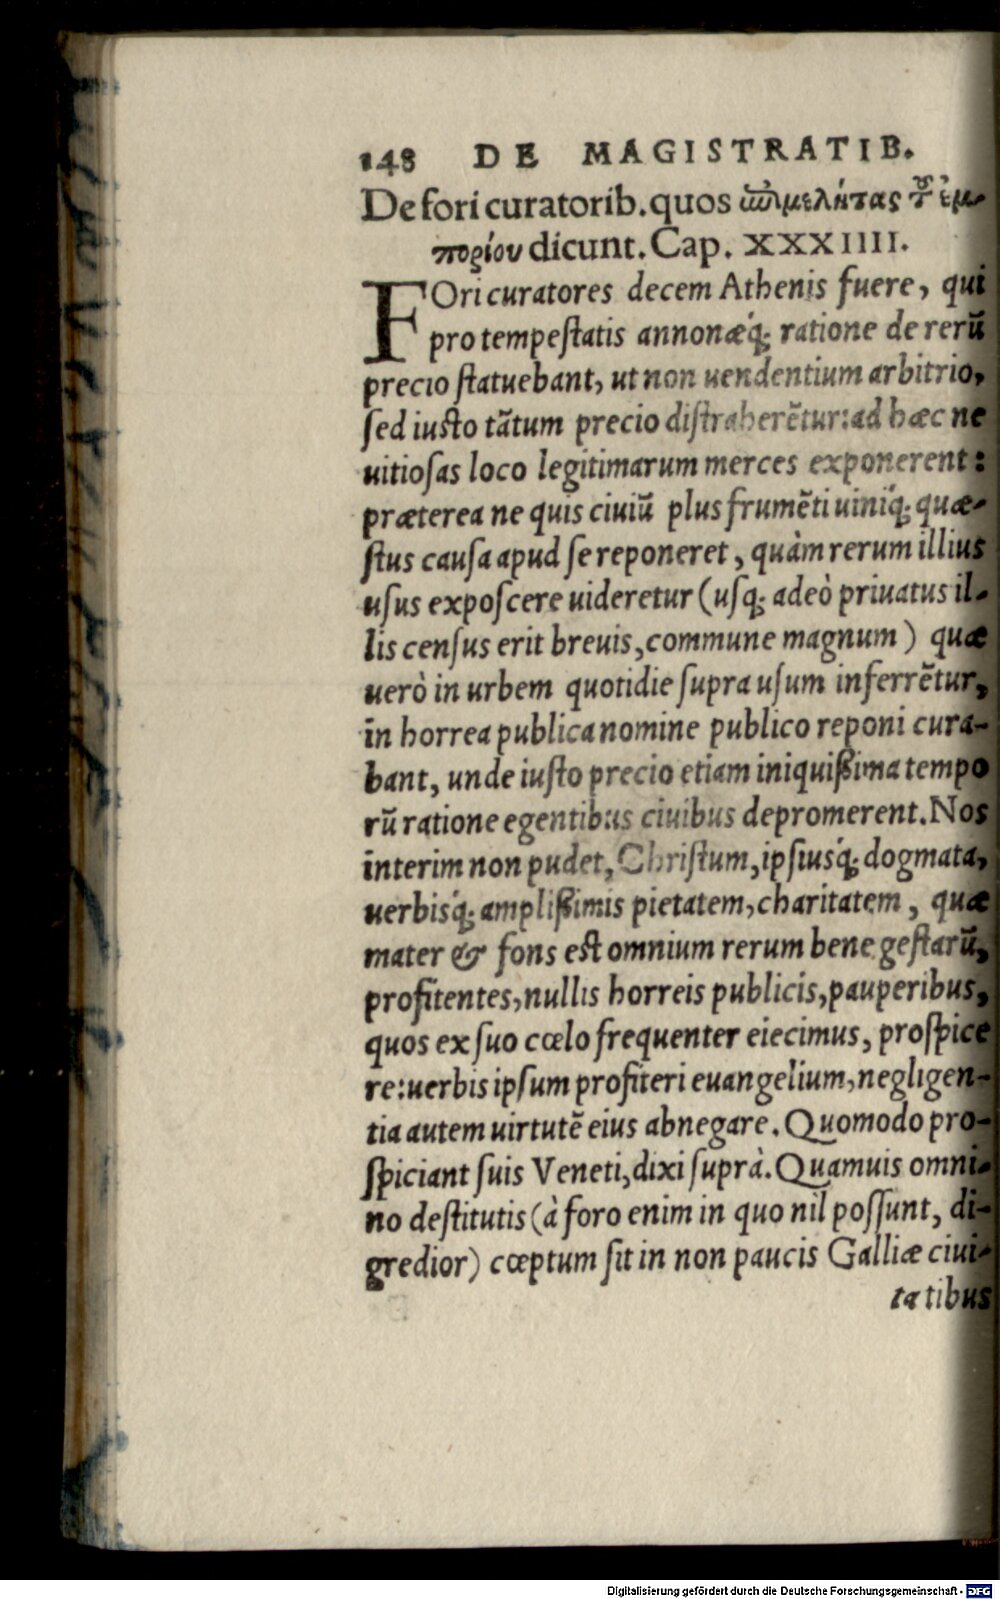 148 DE MAGISTRATIB.
De fori curatorib. quos ἐπιμελήτας τοῦ ἐμ-
πορίου dicunt. Cap. XXXIIII.
FOri curatores decem Athenis fuere, qui
pro tempeſtatis annonæq́; ratione de rerū
precio ſtatuebant, ut non uendentium arbitrio,
ſed iuſto tātum precio diſtraherētur: ad hæc ne
uitioſas loco legitimarum merces exponerent:
præterea ne quis ciuiū plus frumēti uiniq́; quæ-
ſtus cauſa apud ſe reponeret, quàm rerum illius
uſus expoſcere uideretur (uſq; adeò priuatus il-
lis cenſus erit breuis, commune magnum) quæ
uerò in urbem quotidie ſupra uſum inferrētur,
in horrea publica nomine publico reponi cura-
bant, unde iuſto precio etiam iniquißima tempo
rū ratione egentibus ciuibus depromerent. Nos
interim non pudet, Chriſtum, ipſiusq́; dogmata,
uerbisq́; amplißimis pietatem, charitatem, quæ
mater & fons eſt omnium rerum bene geſtarū,
profitentes, nullis horreis publicis, pauperibus,
quos ex ſuo cœlo frequenter eiecimus, proſpice
re: uerbis ipſum profiteri euangelium, negligen-
tia autem uirtutē eius abnegare. Quomodo pro-
ſpiciant ſuis Veneti, dixi ſuprà. Quamuis omni-
no deſtitutis (à foro enim in quo nil poſſunt, di-
gredior) cœptum ſit in non paucis Galliæ ciui-
tatibus
Digitalisierung gefördert durch die Deutsche Forschungsgemeinschaft - DFG